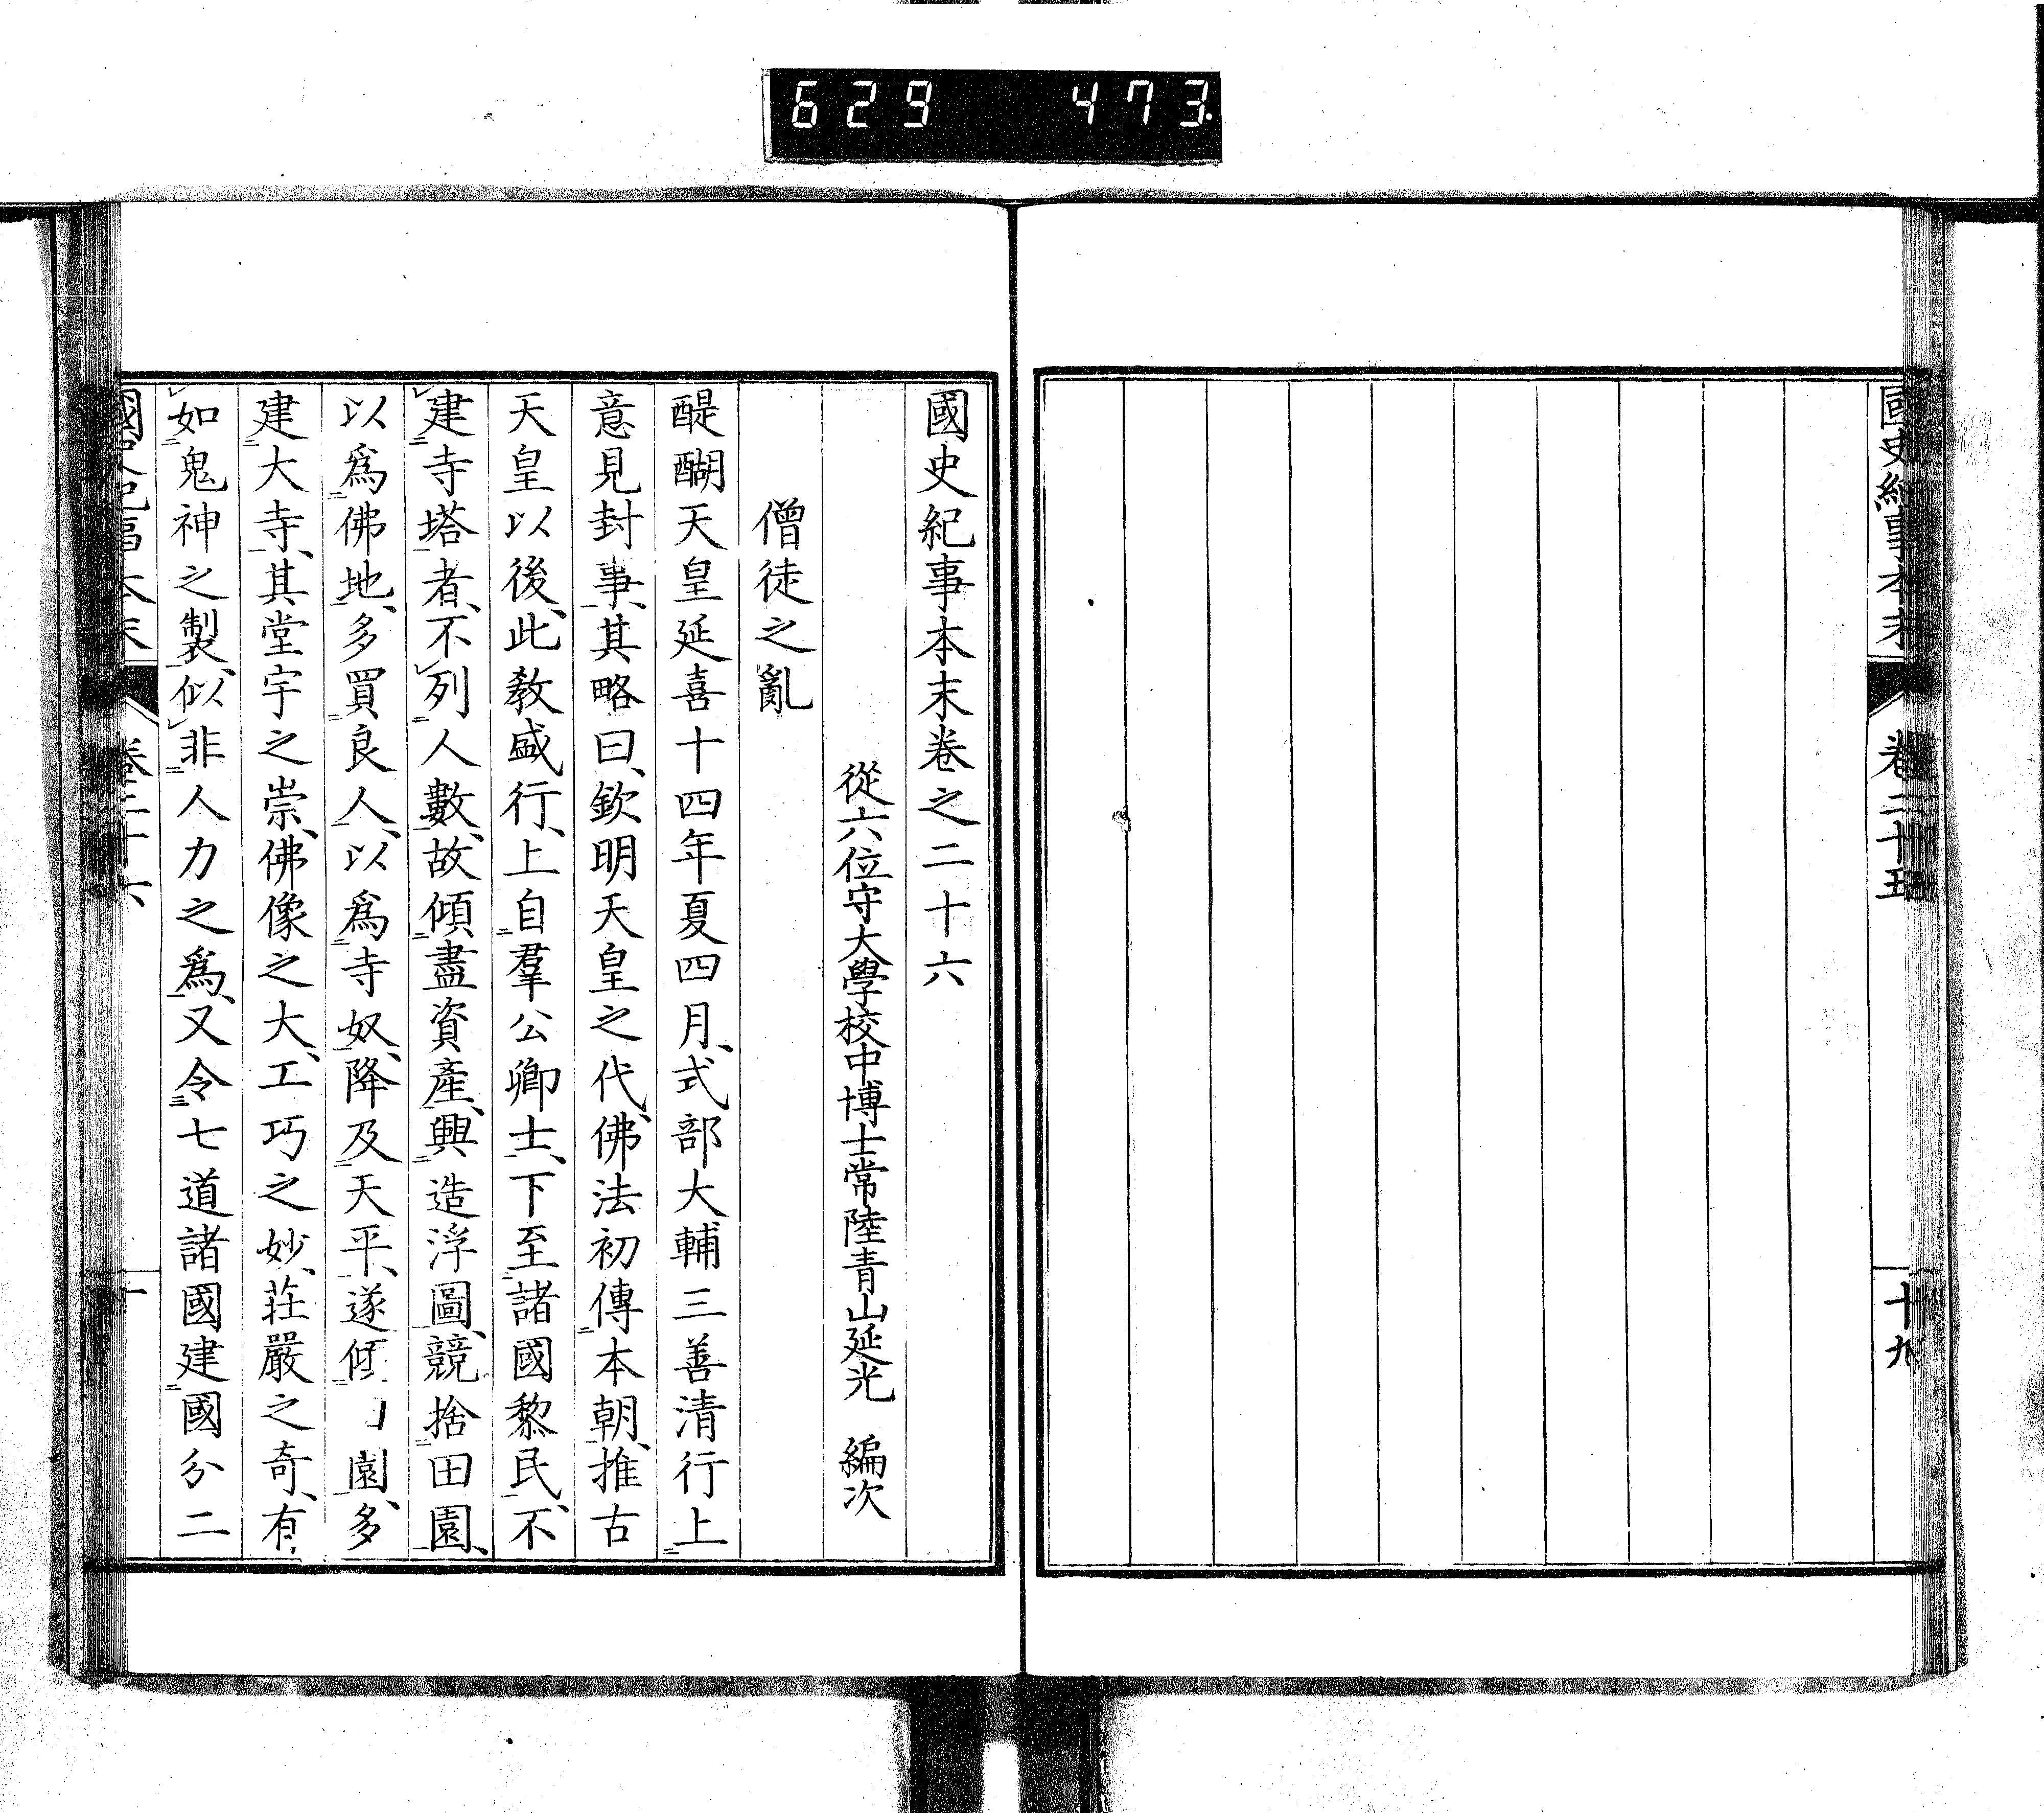 629 473
國史紀事本末
卷二十五
十九
國史紀事本末卷之二十六
從六位守大學校中博士常陸青山延光 編次
僧徒之亂
醍醐天皇延喜十四年夏四月、式部大輔三善清行上
意見封事、其略曰、欽明天皇之代、佛法初傳本朝、推古
天皇以後、此教盛行、上自羣公卿士、下至諸國黎民、不
建寺塔者、不列人數、故傾盡資產、興造浮圖、競捨田園、
以爲佛地、多買良人、以爲寺奴、降及天平、遂傾 園、多
建大寺、其堂宇之崇、佛像之大、工巧之妙、莊嚴之奇、有
如鬼神之製、似非人力之爲、又令七道諸國建國分二
國史紀事本末
卷二十六
一